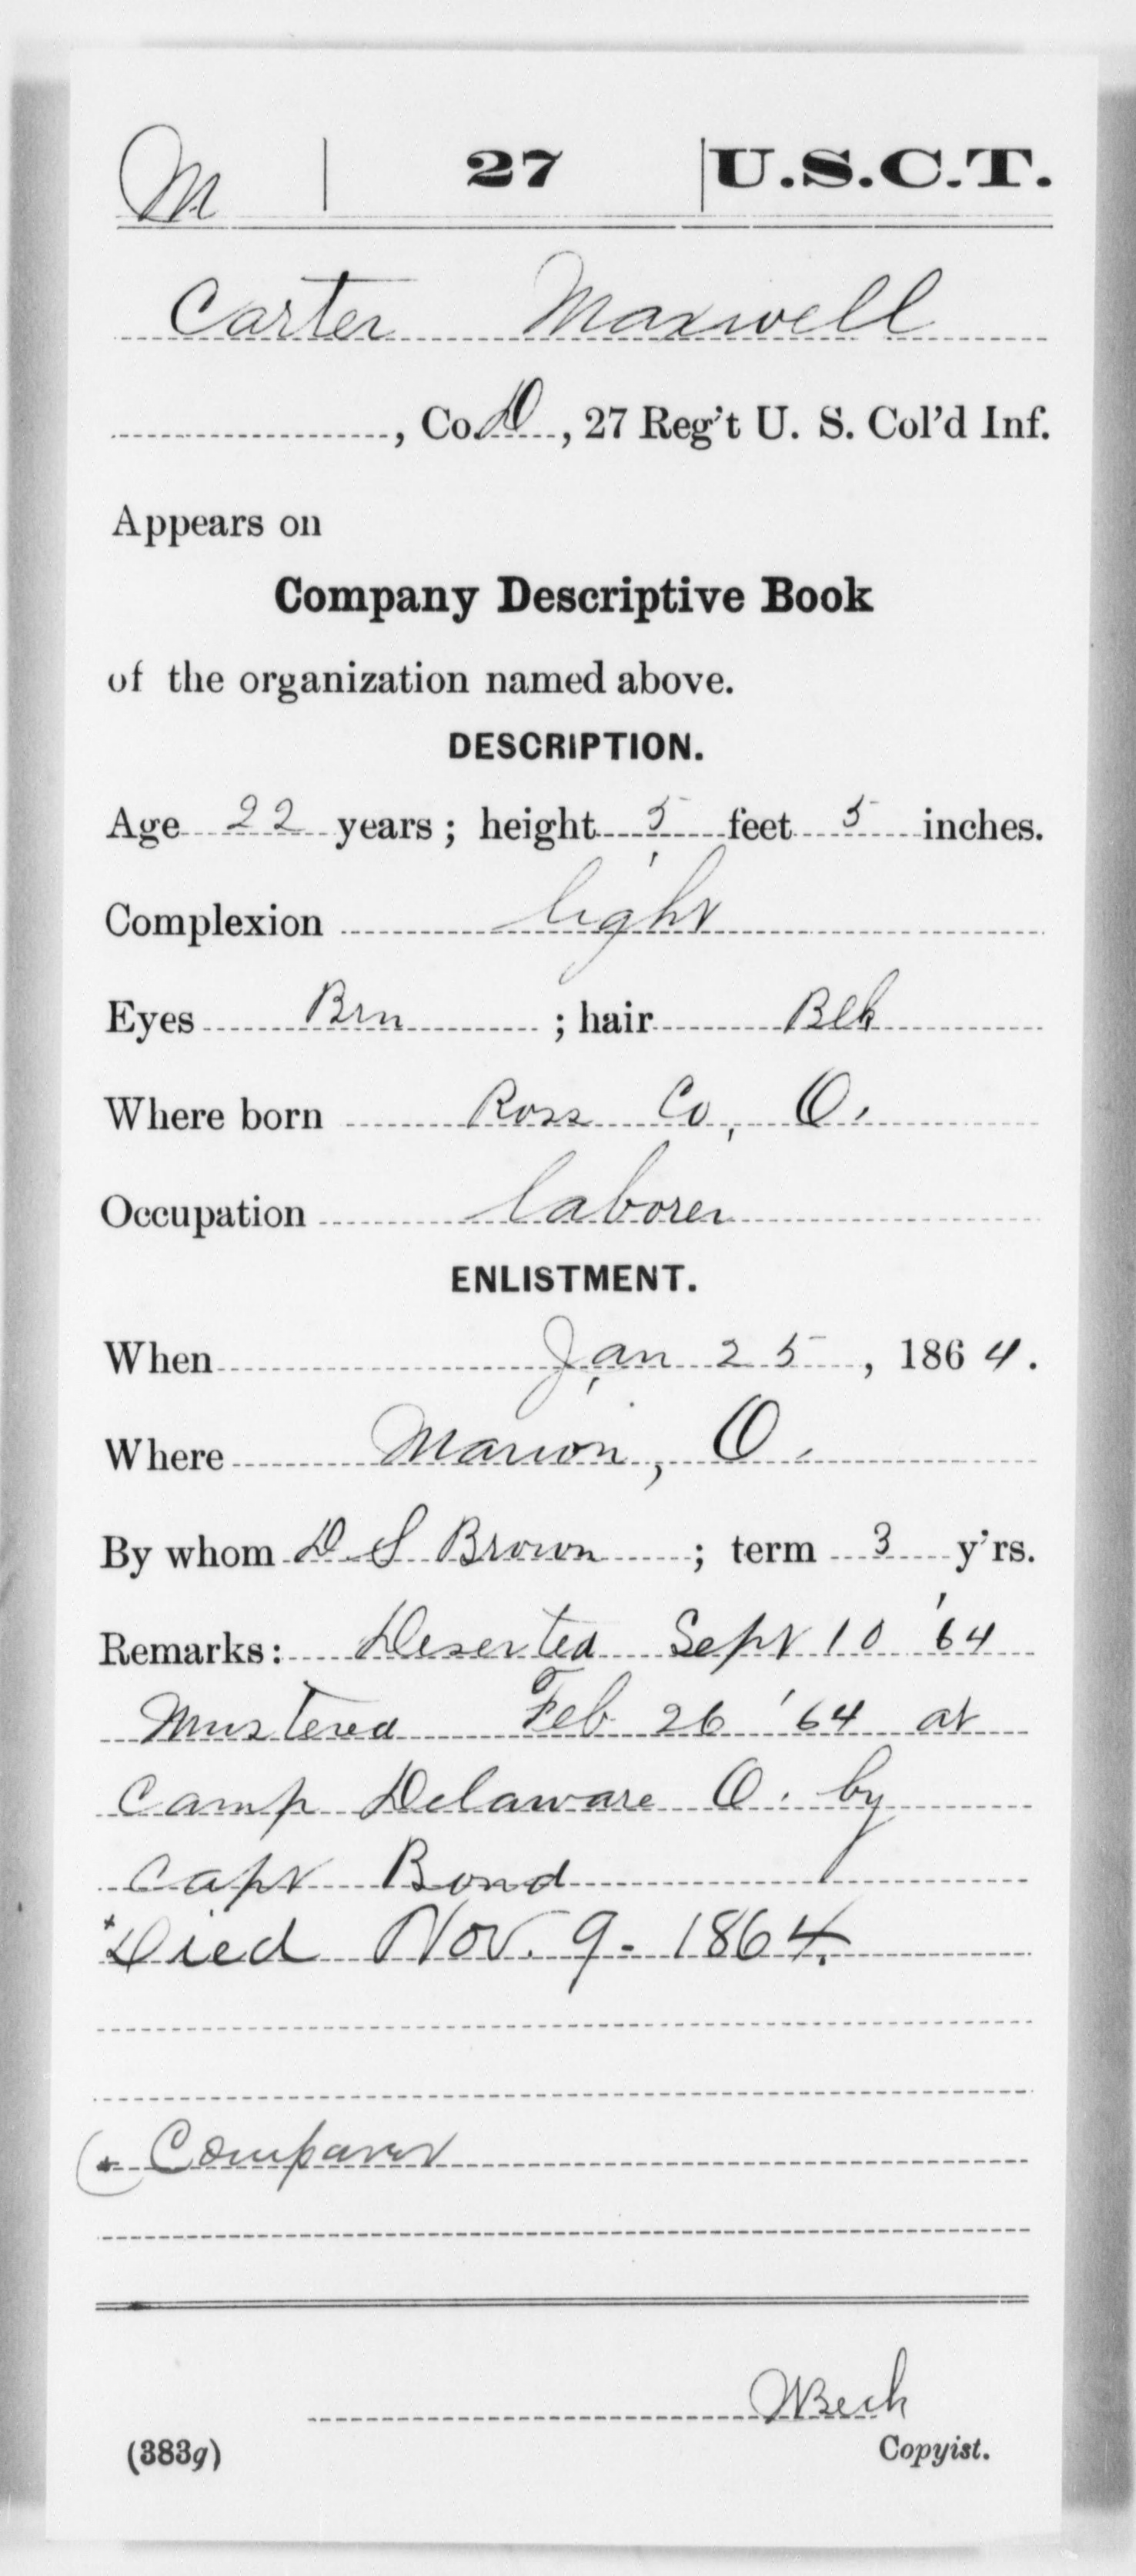 M 27 U.S.C.T.
Carter Maxwell
, Co. D, 27 Reg't U. S. Col'd Inf.
Appears on
Company Descriptive Book
of the organization named above.
DESCRIPTION.
Age 22 years; height 5 feet 5 inches.
Complexion light
Eyes Brn ; hair Blk
Where born Ross Co, O.
Occupation laborer
ENLISTMENT.
When Jan 25, 1864.
Where Marion, O.
By whom D S Brown ; term 3 y'rs.
Remarks: Deserted Sept 10 '64
Mustered Feb 26 '64 at
Camp Delaware O. by
Capt Bond
Died Nov. 9. 1864.
(383g)
Copyist.